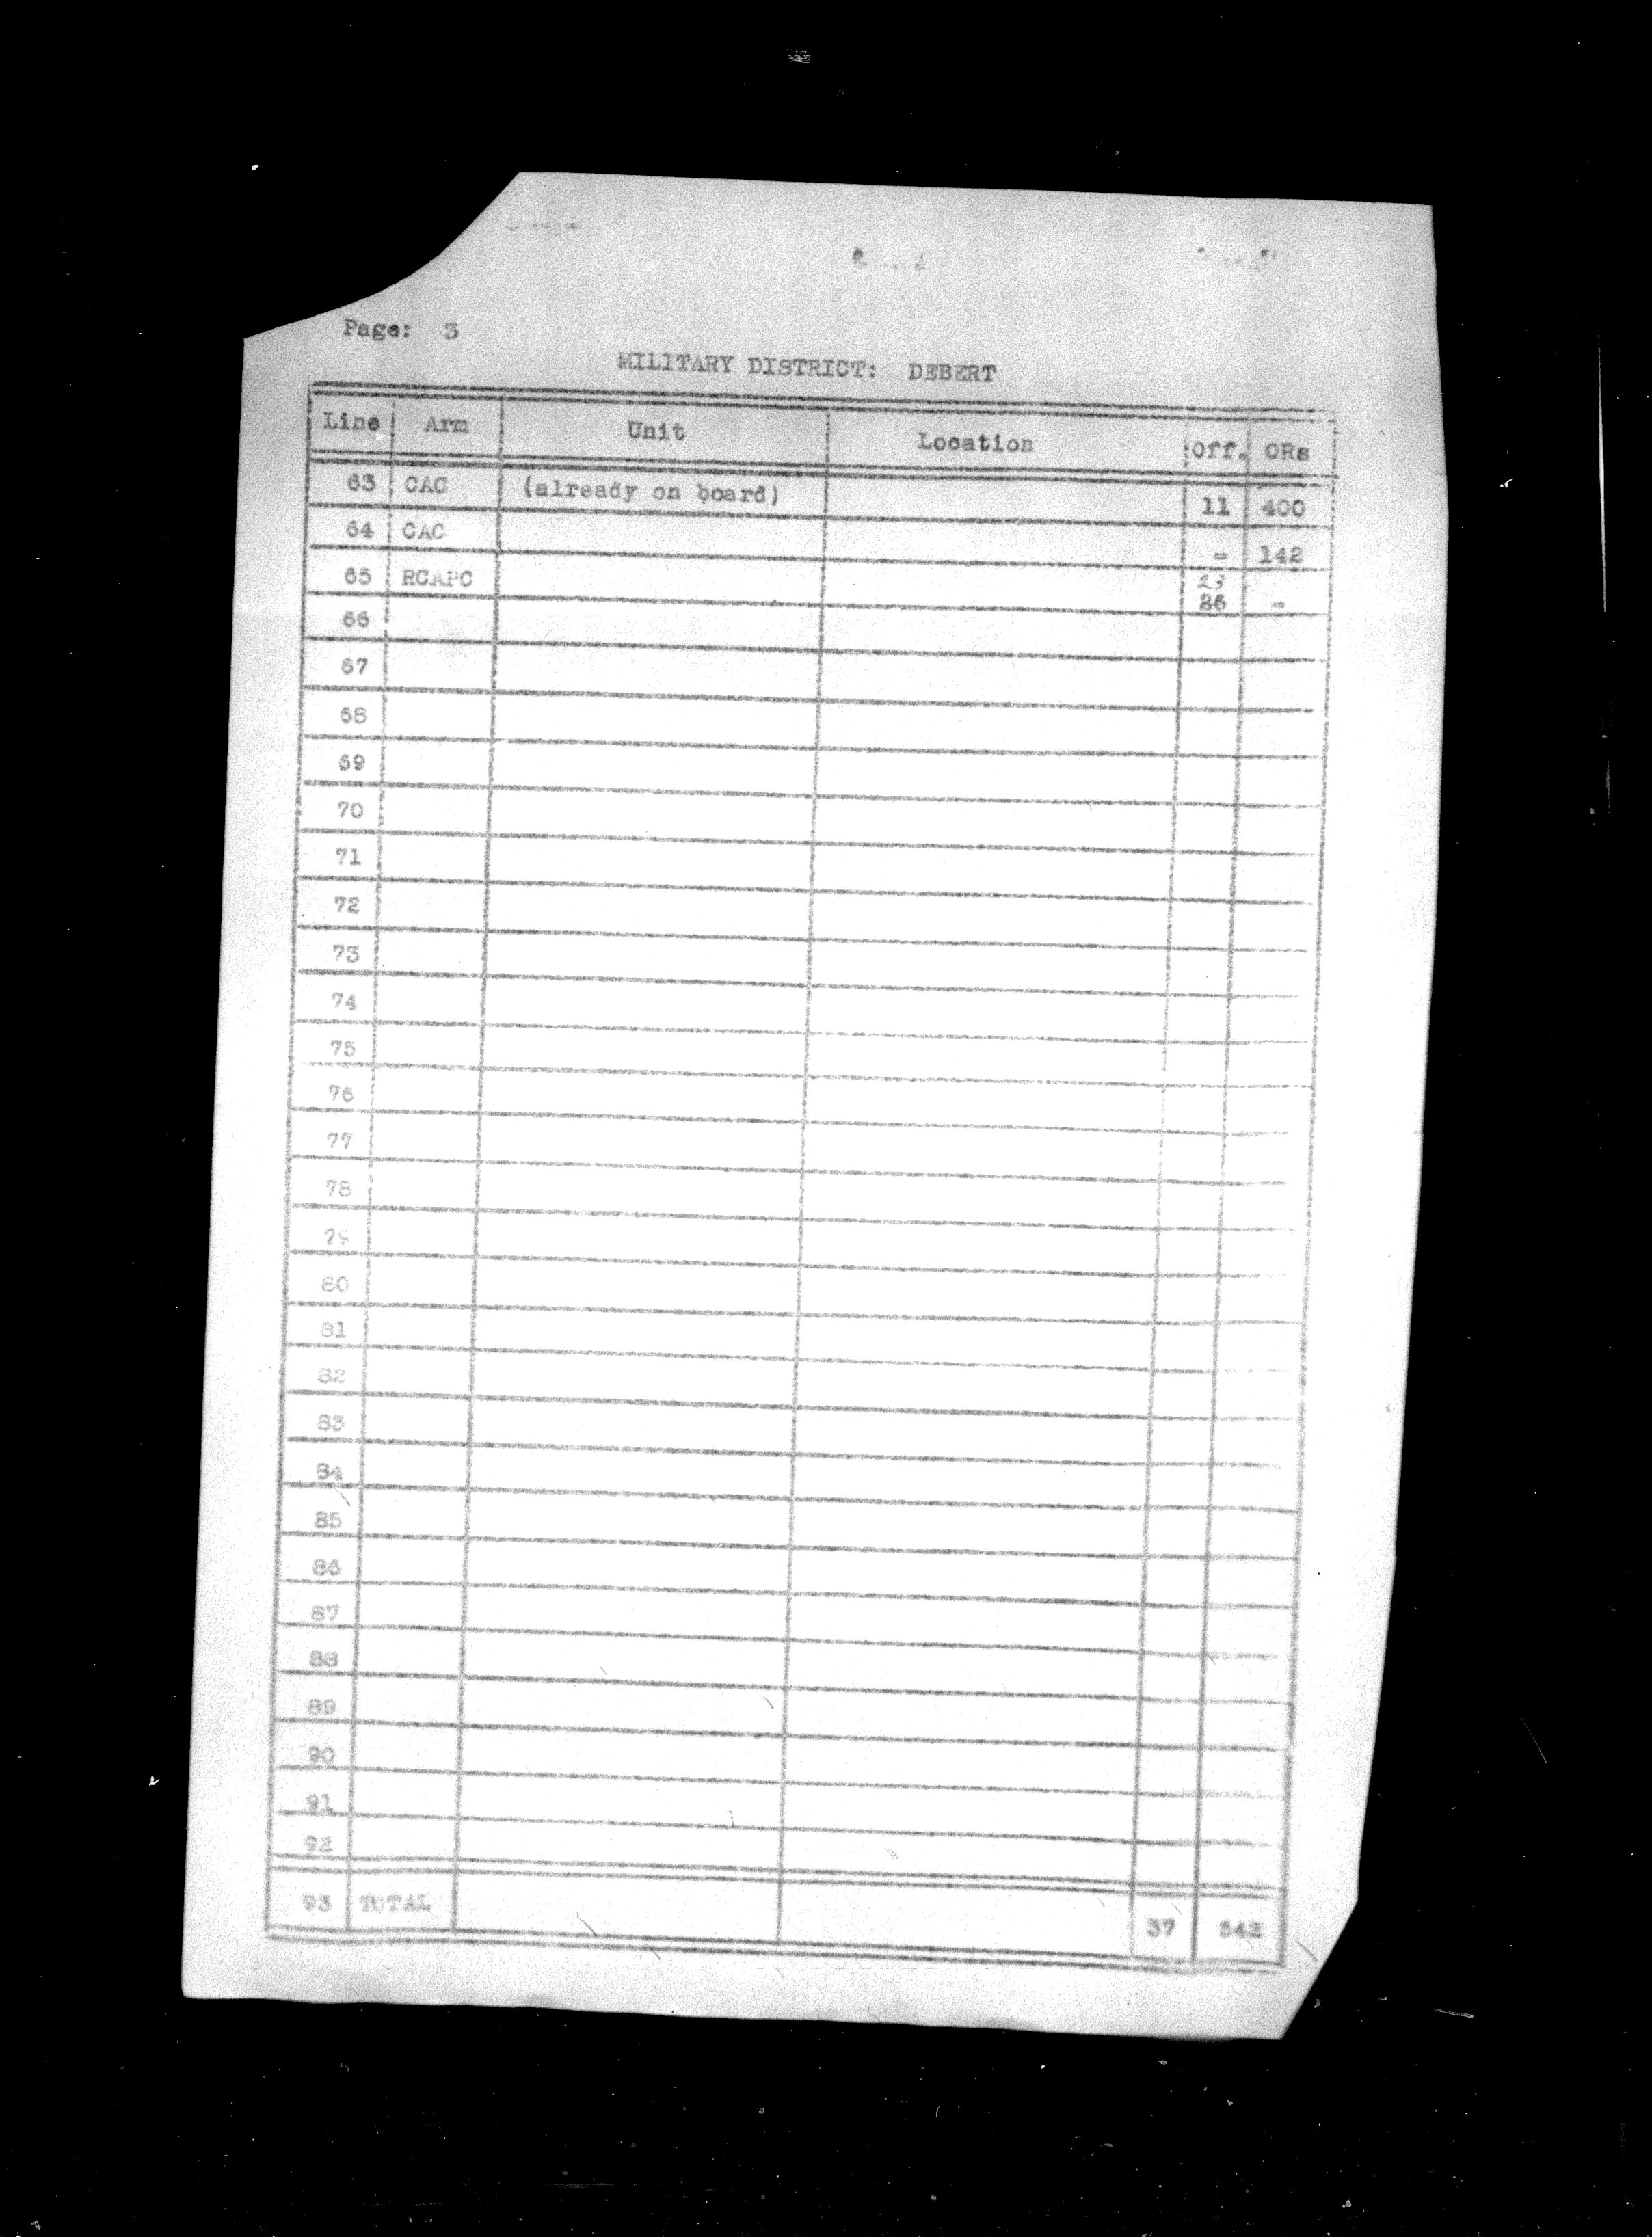 Page: 3
MILITARY DISTRICT: DEBERT
Line Arm Unit Location Off. ORs
63 CAC (already on board) 11 400
64 CAC - 142
65 RCAPC 23
26 -
66
67
68
69
70
71
72
73
74
75
76
77
78
79
80
81
82
83
84
85
86
87
88
89
90
91
92
93 TOTAL 37 542